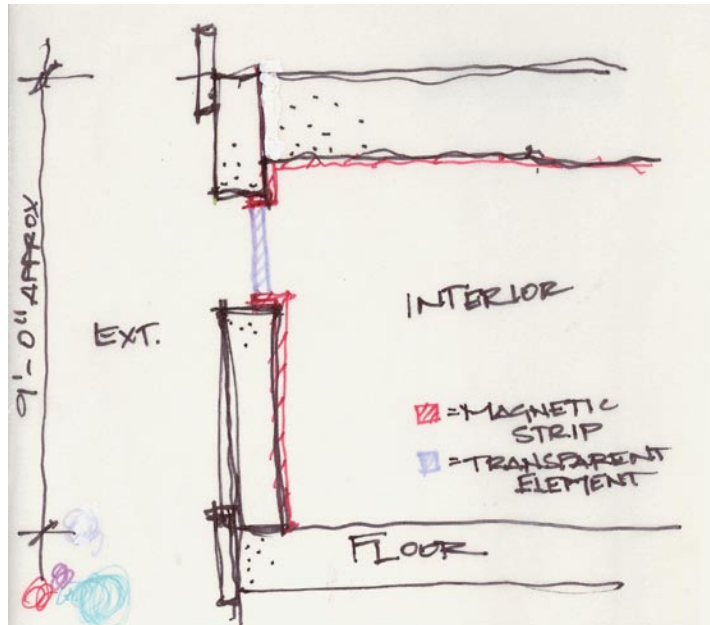 9'-0" APPROX
EXT.
INTERIOR
=MAGNETIC
STRIP
=TRANSPARENT
ELEMENT
FLOOR